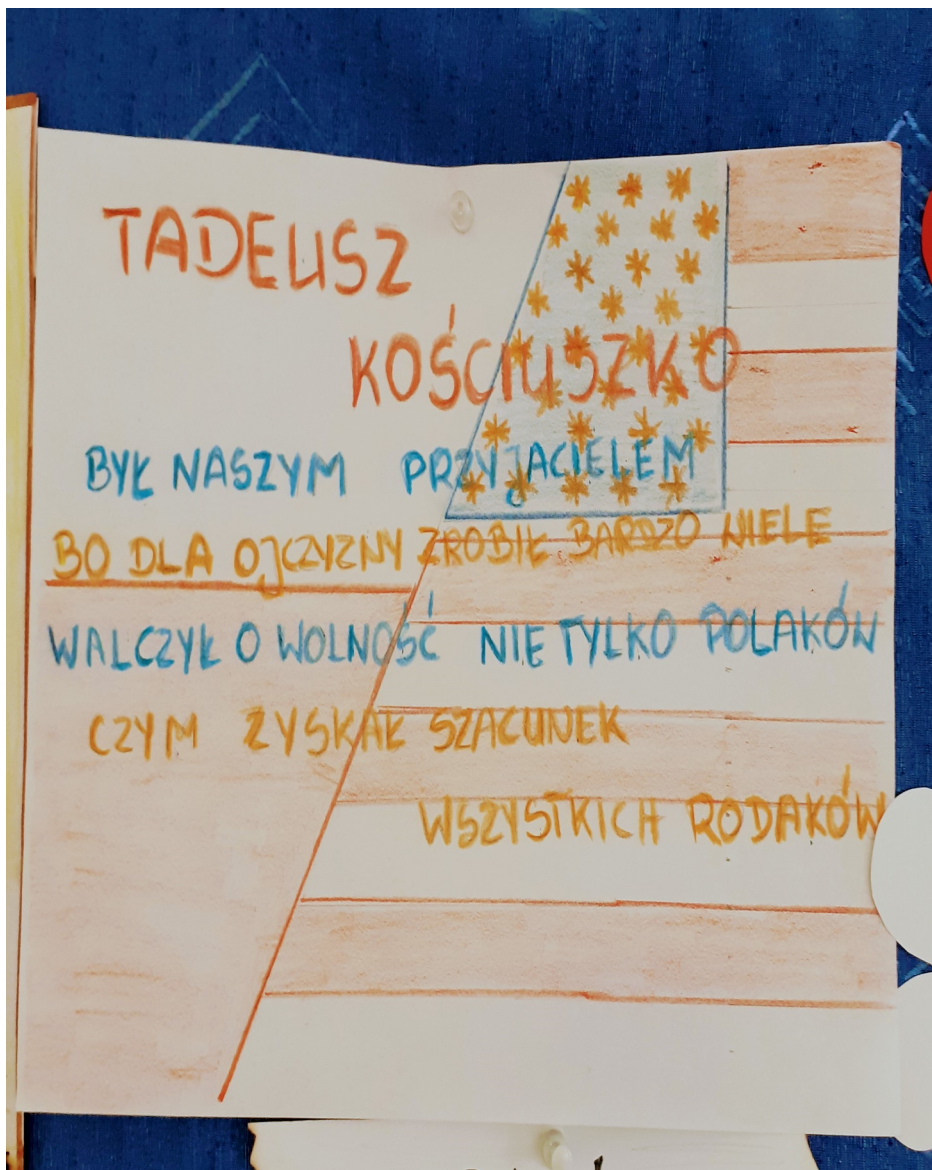 TADEUSZ
KOŚCIUSZKO
BYŁ NASZYM PRZYJACIELEM
BO DLA OJCZYZNY ZROBIŁ BARDZO WIELE
WALCZYŁ O WOLNOŚĆ NIE TYLKO POLAKÓW
CZYM ZYSKAŁ SZACUNEK
WSZYSTKICH RODAKÓW